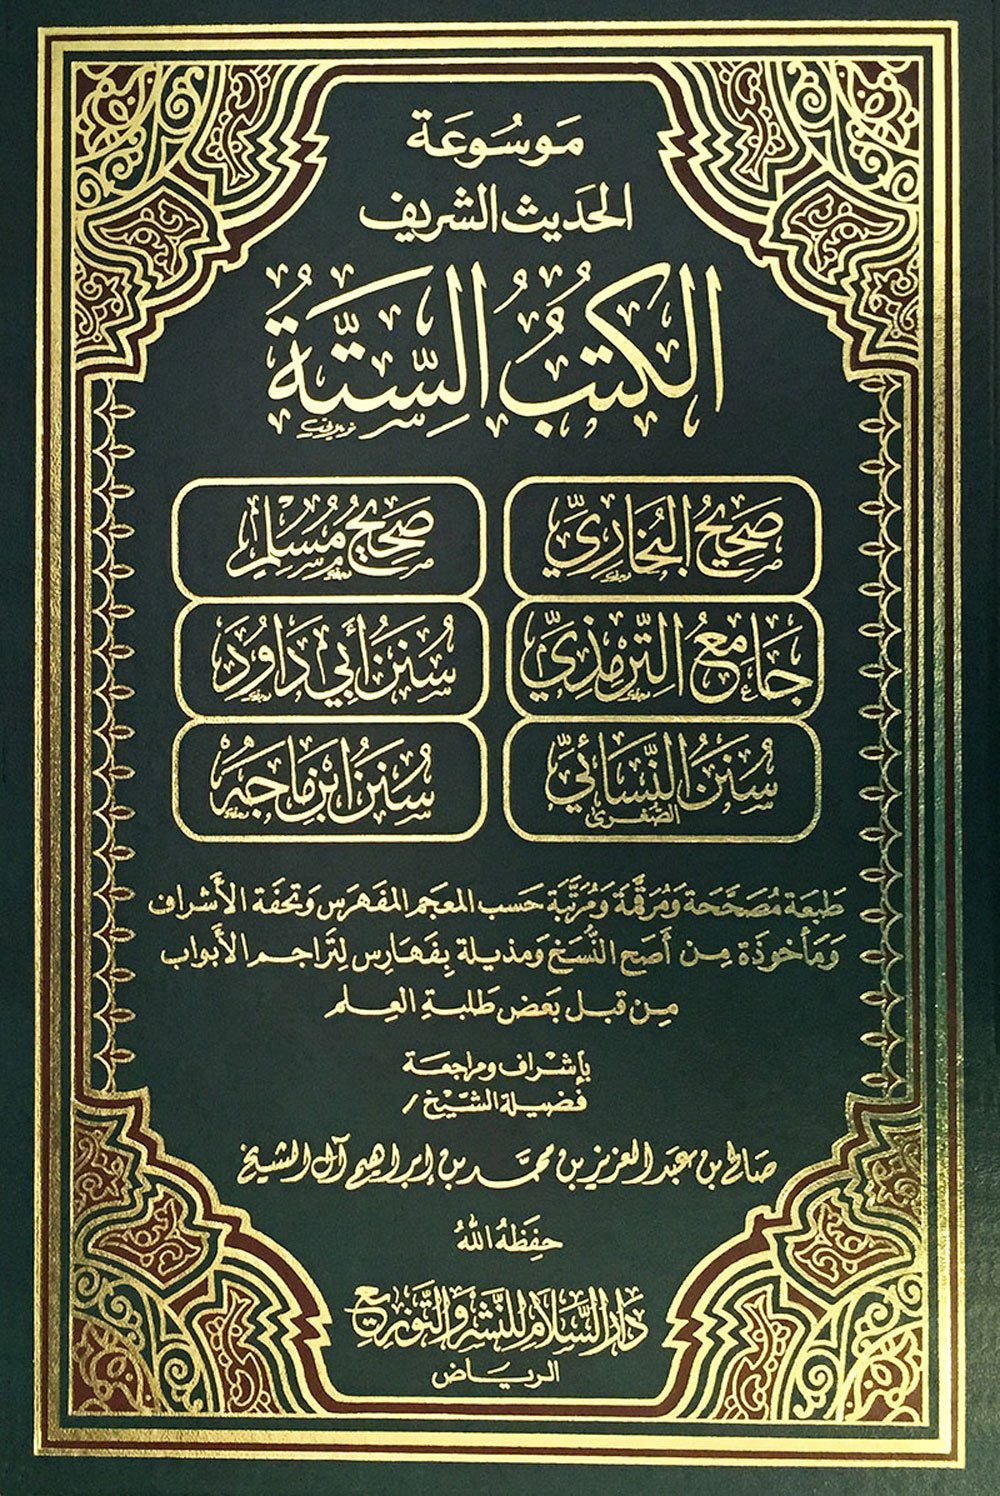 مَوسُوعَة
الحَديث الشريف
الكتبُ السِّتَّةُ
صَحِيحُ البُخَارِيِّ
صَحِيحُ مُسْلِم
جَامِعُ التِّرمِذِيِّ
سُنَنُ أَبِي دَاوُدَ
سُنَنُ النَّسَائِيِّ
الصُّغرى
سُنَنُ ابن مَاجَه
طَبعَة مُصَحَّحَة وَمُرَقَّمَة وَمُرَتَّبَة حَسب المعجم المفَهرس وَتحفَة الأشراف
وَمَأخوذَة مِن أَصَح النُّسَخ وَمذيلة بِفَهَارِس لِتَراجم الأَبواب
مِن قبل بَعض طَلبةِ العِلم
بإشْراف ومراجعة
فضيلة الشَّيْخ /
صَالح بن عَبد العزيز بن محمَّد بن إبراهيم آل الشيخ
حفِظهُ اللهُ
دَارُ السَّلام للنَّشر وَالتَّوزيع
الرياض